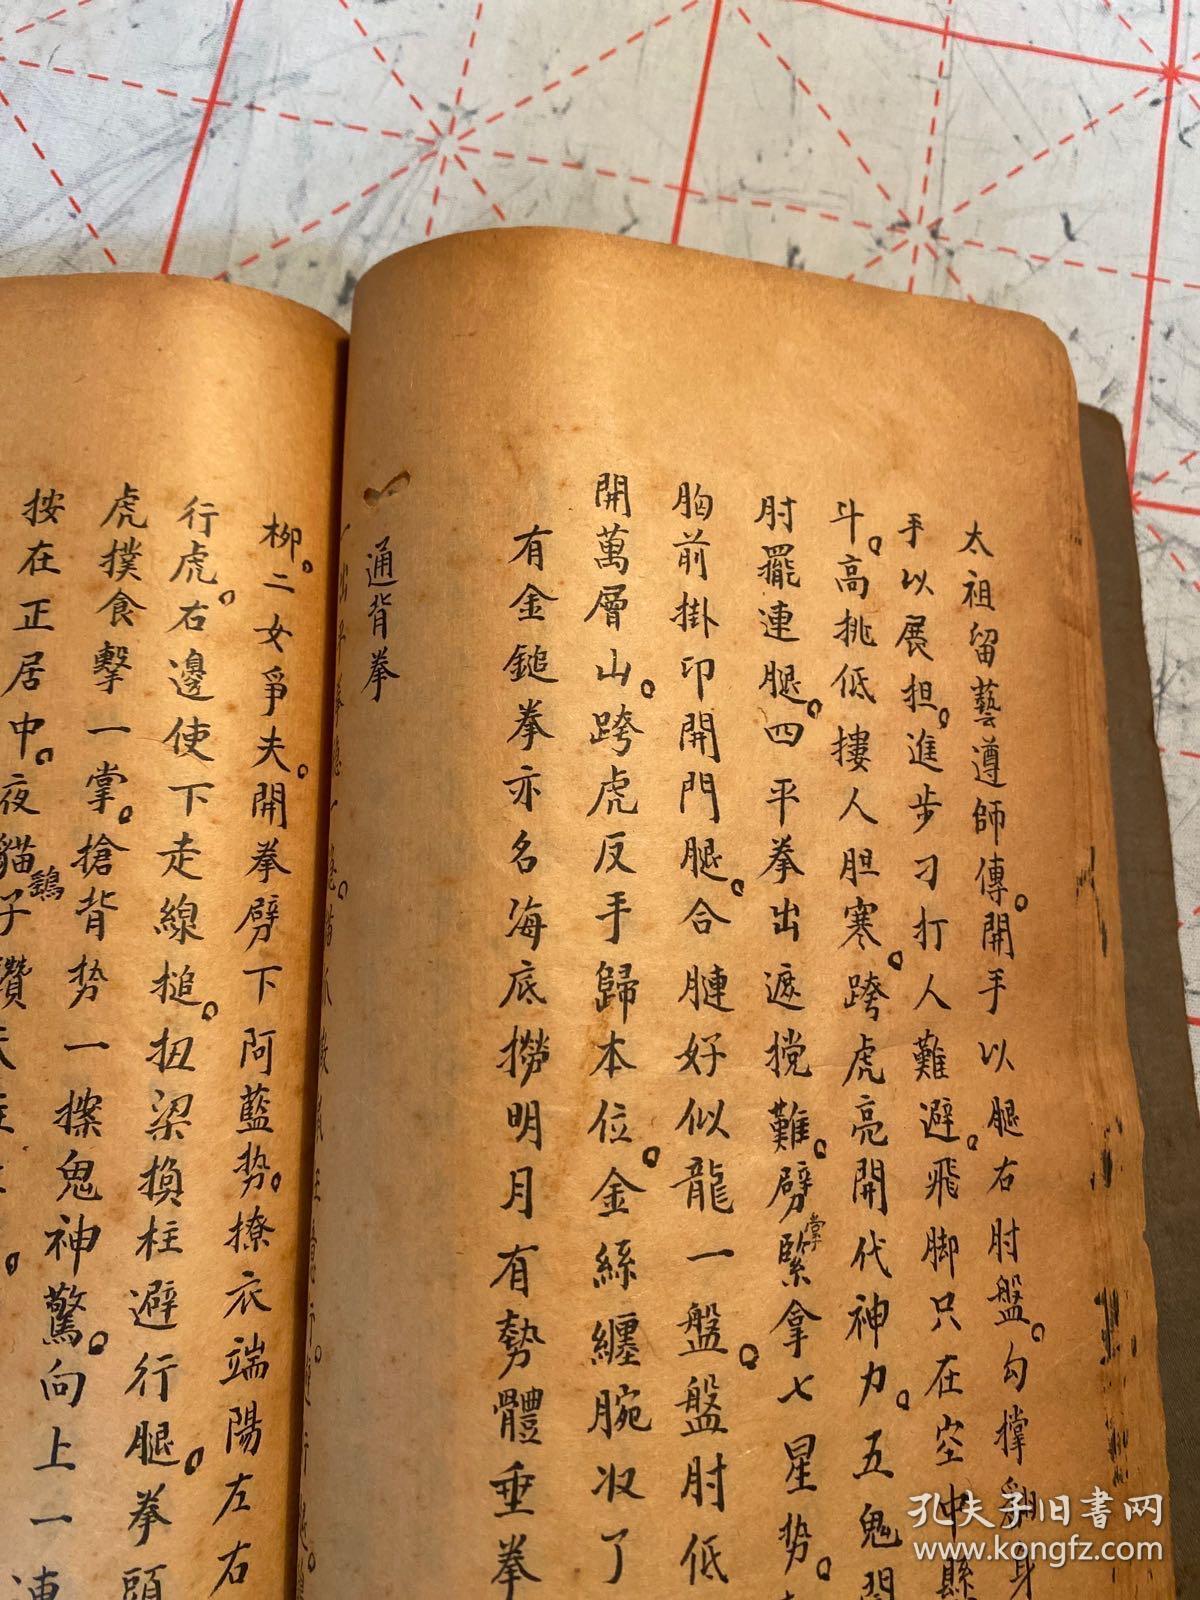 太祖留藝遵師傳。開手以腿右肘盤。勾撑翻身
手以展担。進步刁打人難避。飛脚只在空中懸
斗。高挑低摟人胆寒。跨虎亮開代神力。五鬼閙
肘擺連腿。四平拳出遮搅難。劈緊掌拿七星势。
胸前掛印開門腿。合腱好似龍一盤。盤肘低
開萬層山。跨虎反手歸本位。金絲纏腕収了
有金鎚拳亦名海底撈明月有勢體垂拳
通背拳
柳。二女爭夫。開拳劈下阿藍势。撩衣端陽左右
行虎。右邊使下走線搥。扭梁換柱避行腿。拳頭
虎撲食擊一掌。搶背势一擦鬼神驚。向上一連
按在正居中。夜貓子鑽天
孔夫子旧书网
www.kongfz.com